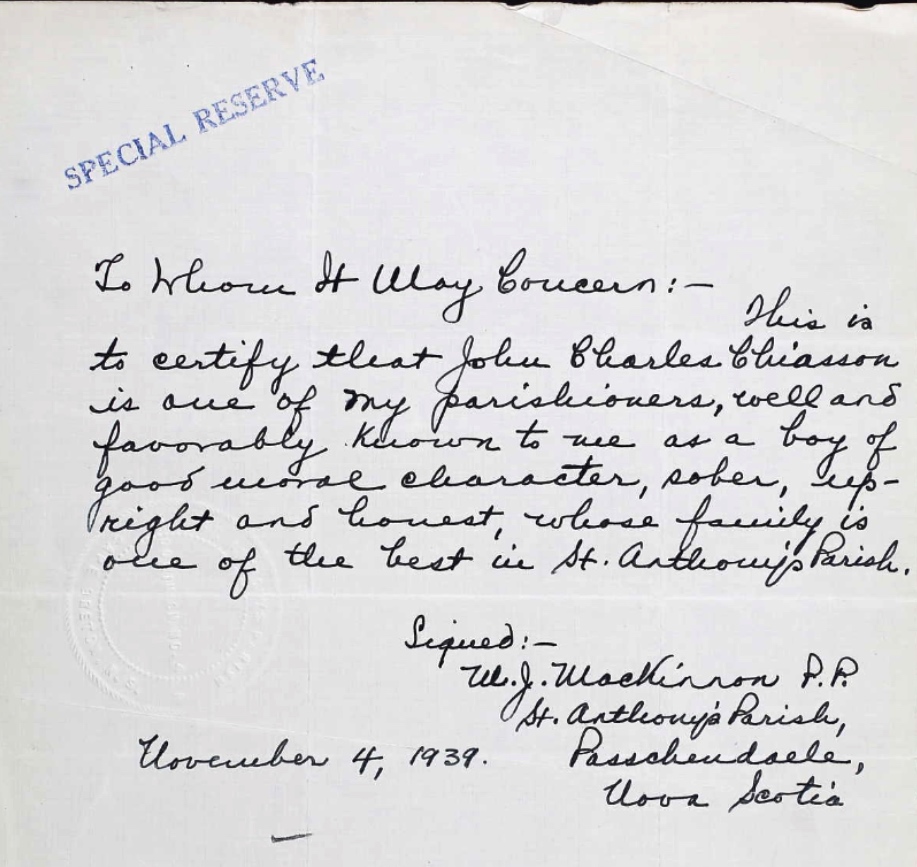 SPECIAL RESERVE
To Whom It May Concern:-
This is
to certify that John Charles Chiasson
is one of my parishioners, well and
favorably known to me as a boy of
good moral character, sober, up-
right and honest, whose family is
one of the best in St. Anthony's Parish.
Signed:-
M.J. MacKinnon P.P.
St. Anthony's Parish,
November 4, 1939. Passchendaele,
Nova Scotia